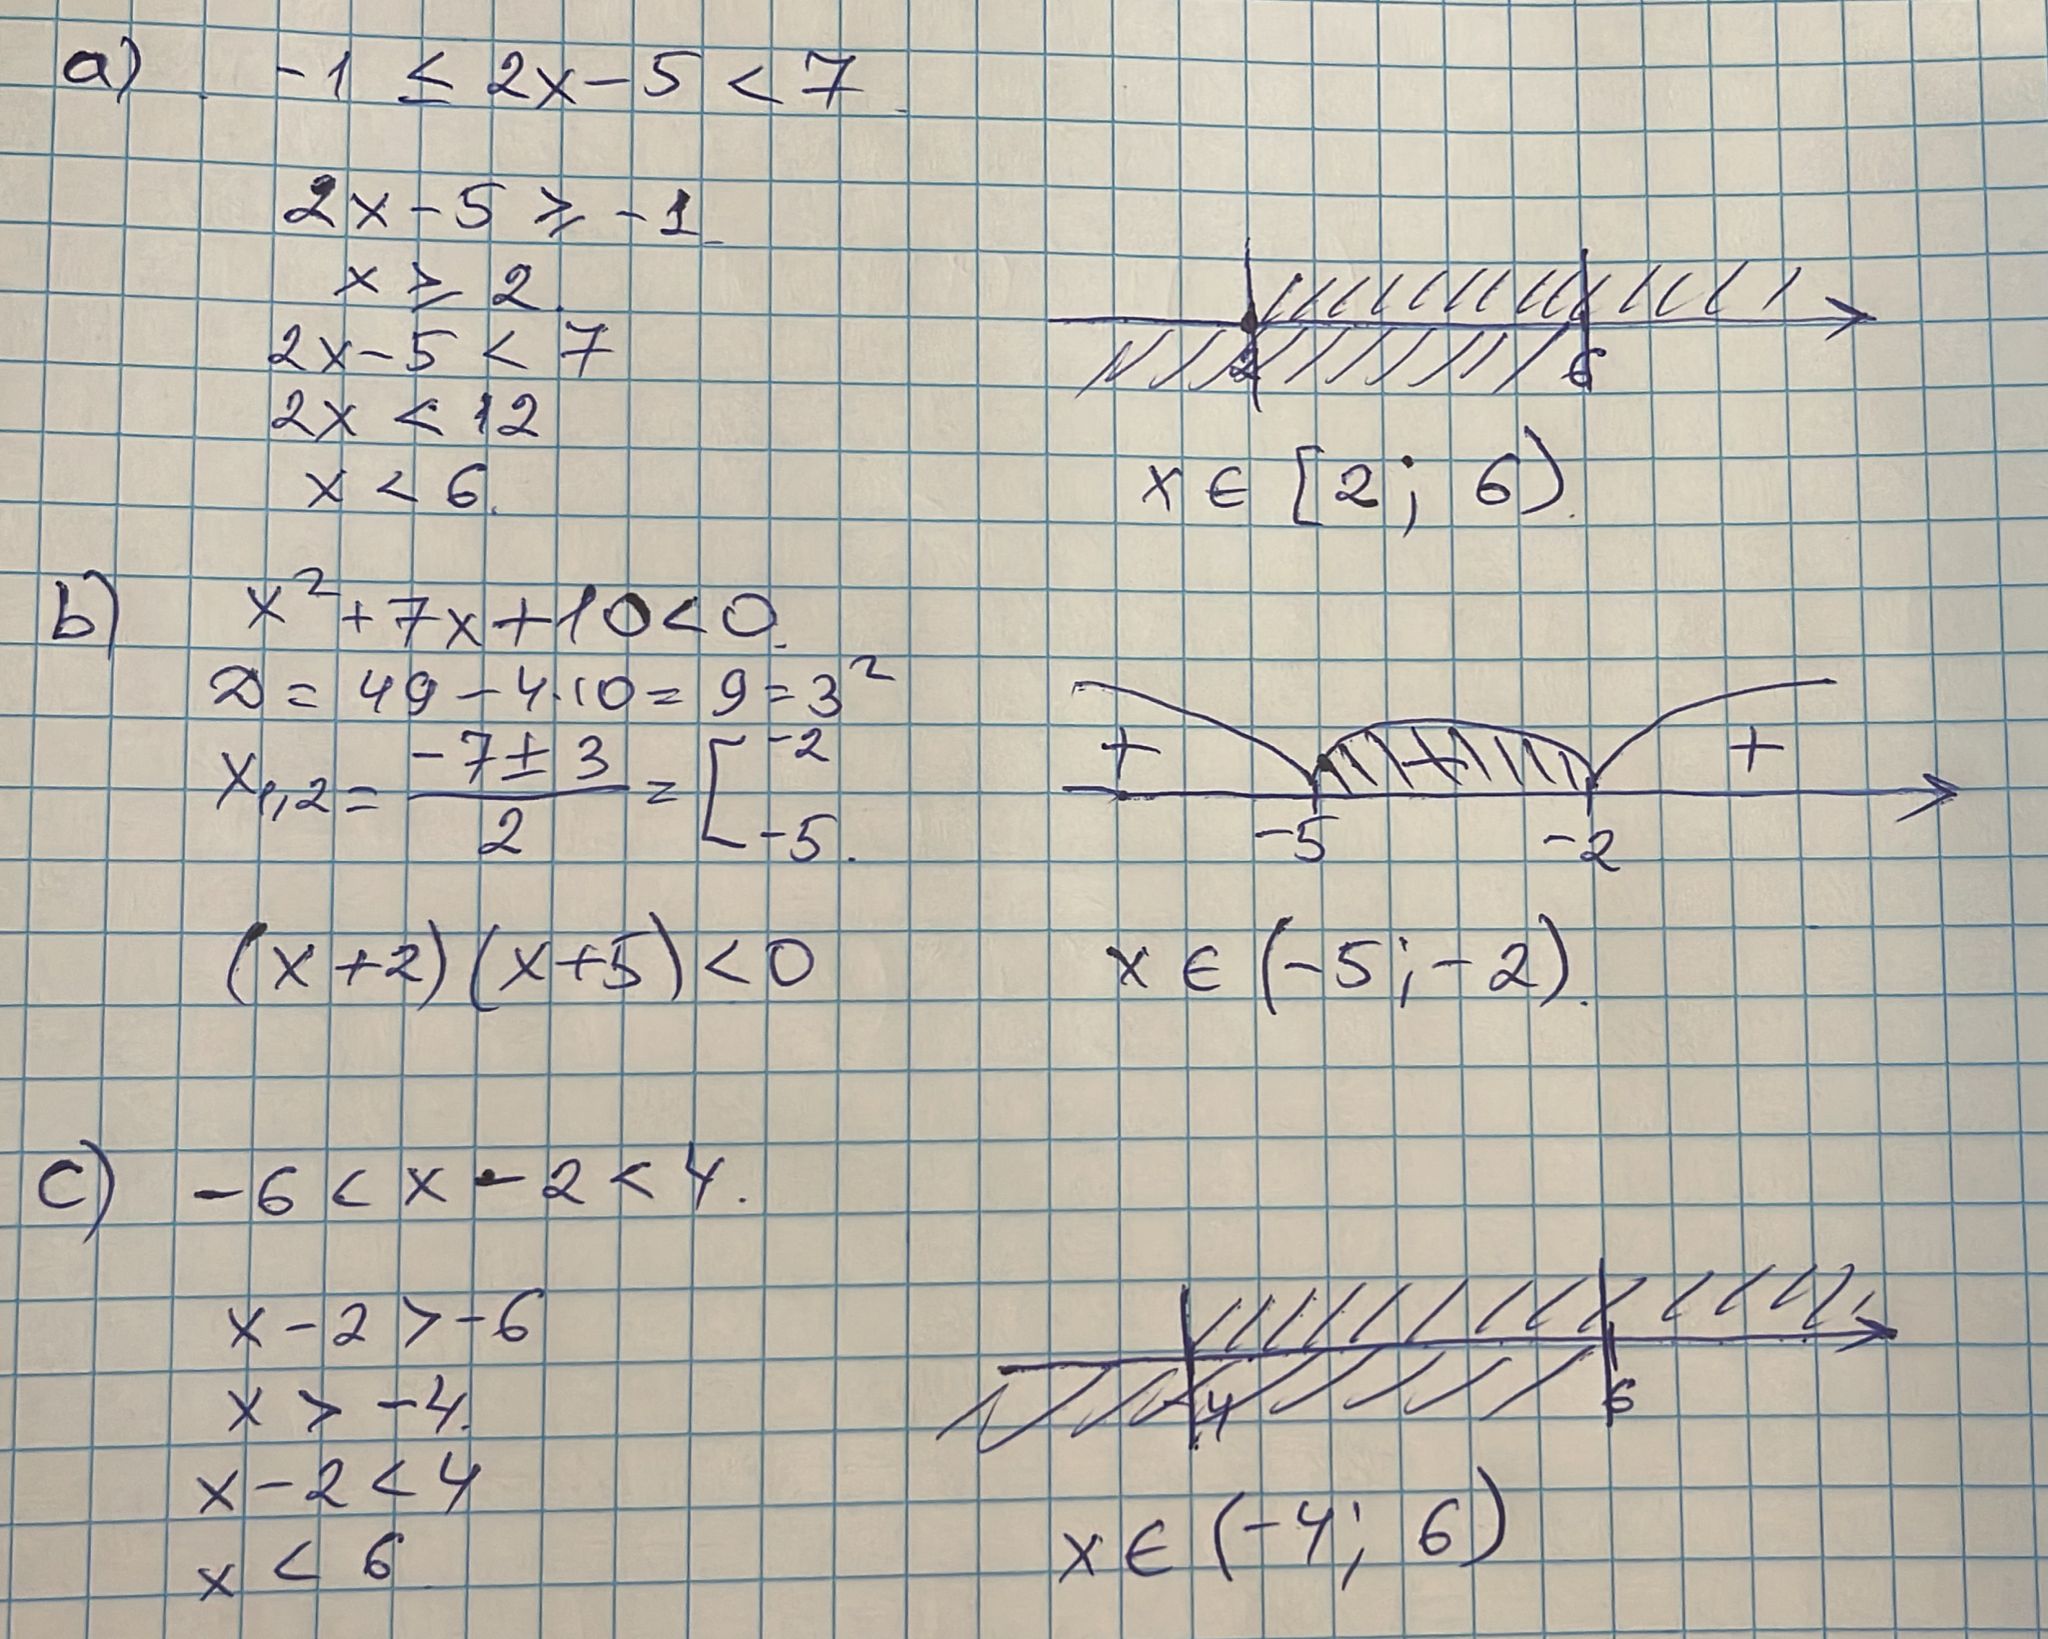 a) -1 ≤ 2x-5 < 7
2x-5 ≥ -1
x ≥ 2
2x-5 < 7
2x < 12
x < 6.
2 6
x ∈ [2; 6)
b) x²+7x+10<0
D = 49-4·10= 9=3²
x₁,₂ = (-7±3)/2 = [-2
-5.
+ + +
-5 -2
(x+2)(x+5)<0
x ∈ (-5;-2).
c) -6 < x - 2 < 4.
x-2 > -6
x > -4.
x-2 < 4
x < 6
-4 6
x ∈ (-4; 6)